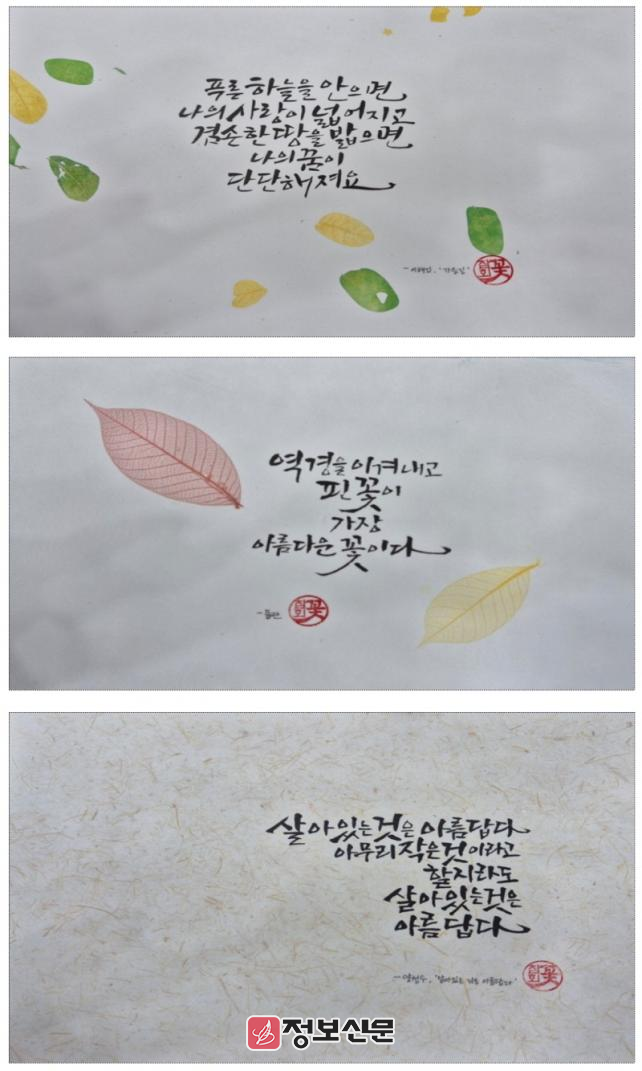 푸른 하늘을 안으면
나의 사랑이 넓어지고
겸손한 땅을 밟으면
나의 꿈이
단단해져요
- 이해인, '가을길'
역경을 이겨내고
핀 꽃이
가장
아름다운 꽃이다
- 뮬란
살아있는것은 아름답다
아무리 작은것이라고
할지라도
살아있는것은
아름답다
- 양성우, '살아있는 것은 아름답다'
정보신문